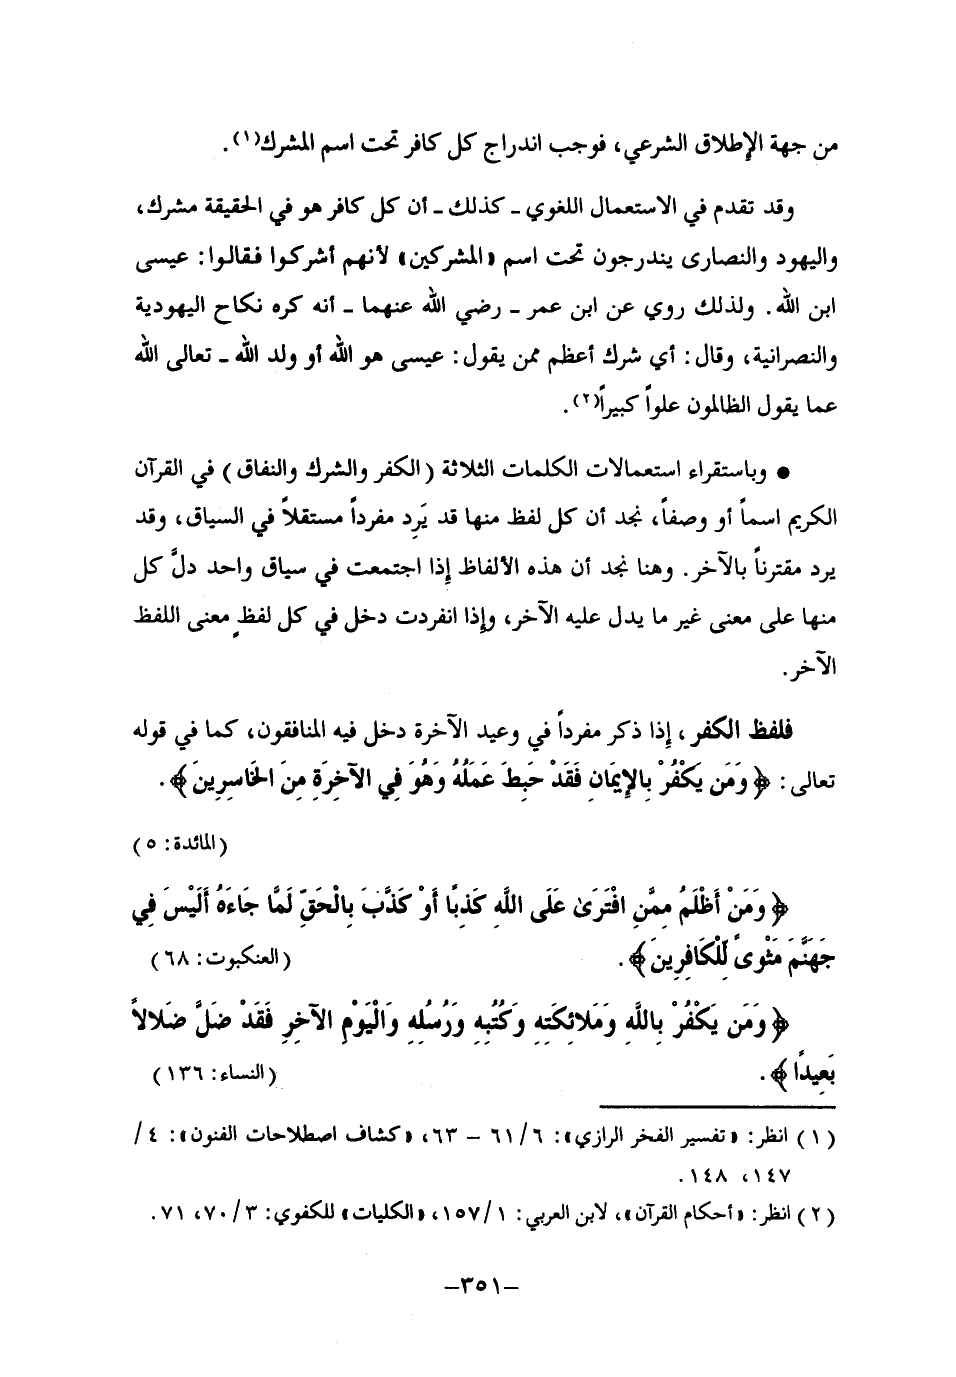 من جهة الإطلاق الشرعي، فوجب اندراج كل كافر تحت اسم المشرك(١).
وقد تقدم في الاستعمال اللغوي ـ كذلك ـ أن كل كافر هو في الحقيقة مشرك،
واليهود والنصارى يندرجون تحت اسم «المشركين» لأنهم أشركوا فقالوا: عيسى
ابن الله. ولذلك روي عن ابن عمر ـ رضي الله عنهما ـ أنه كره نكاح اليهودية
والنصرانية، وقال: أي شرك أعظم ممن يقول: عيسى هو الله أو ولد الله ـ تعالى الله
عما يقول الظالمون علواً كبيراً(٢).
● وباستقراء استعمالات الكلمات الثلاثة (الكفر والشرك والنفاق) في القرآن
الكريم اسماً أو وصفاً، نجد أن كل لفظ منها قد يَرِد مفرداً مستقلاً في السياق، وقد
يرد مقترناً بالآخر. وهنا نجد أن هذه الألفاظ إذا اجتمعت في سياق واحد دلَّ كل
منها على معنى غير ما يدل عليه الآخر، وإذا انفردت دخل في كل لفظٍ معنى اللفظ
الآخر.
فلفظ الكفر، إذا ذكر مفرداً في وعيد الآخرة دخل فيه المنافقون، كما في قوله
تعالى: ﴿وَمَن يَكْفُرْ بِالإِيمَانِ فَقَدْ حَبِطَ عَمَلُهُ وَهُوَ فِي الآخِرَةِ مِنَ الخَاسِرِينَ﴾.
(المائدة: ٥)
﴿وَمَنْ أَظْلَمُ مِمَّنِ افْتَرَىٰ عَلَى اللَّهِ كَذِبًا أَوْ كَذَّبَ بِالْحَقِّ لَمَّا جَاءَهُ أَلَيْسَ فِي
جَهَنَّمَ مَثْوىً لِّلْكَافِرِينَ﴾. (العنكبوت: ٦٨)
﴿وَمَن يَكْفُرْ بِاللَّهِ وَمَلائِكَتِهِ وَكُتُبِهِ وَرُسُلِهِ وَالْيَوْمِ الآخِرِ فَقَدْ ضَلَّ ضَلالاً
بَعِيدًا﴾. (النساء: ١٣٦)
(١) انظر: «تفسير الفخر الرازي»: ٦/ ٦١ - ٦٣، «كشاف اصطلاحات الفنون»: ٤/
١٤٧، ١٤٨.
(٢) انظر: «أحكام القرآن»، لابن العربي: ١/ ١٥٧، «الكليات» للكفوي: ٣/ ٧٠، ٧١.
-٣٥١-